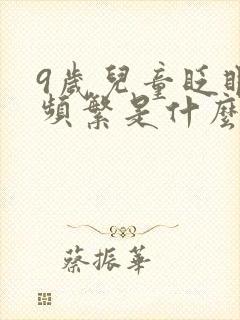 9歲兒童眨眼
頻繁是什麼
蔡振華